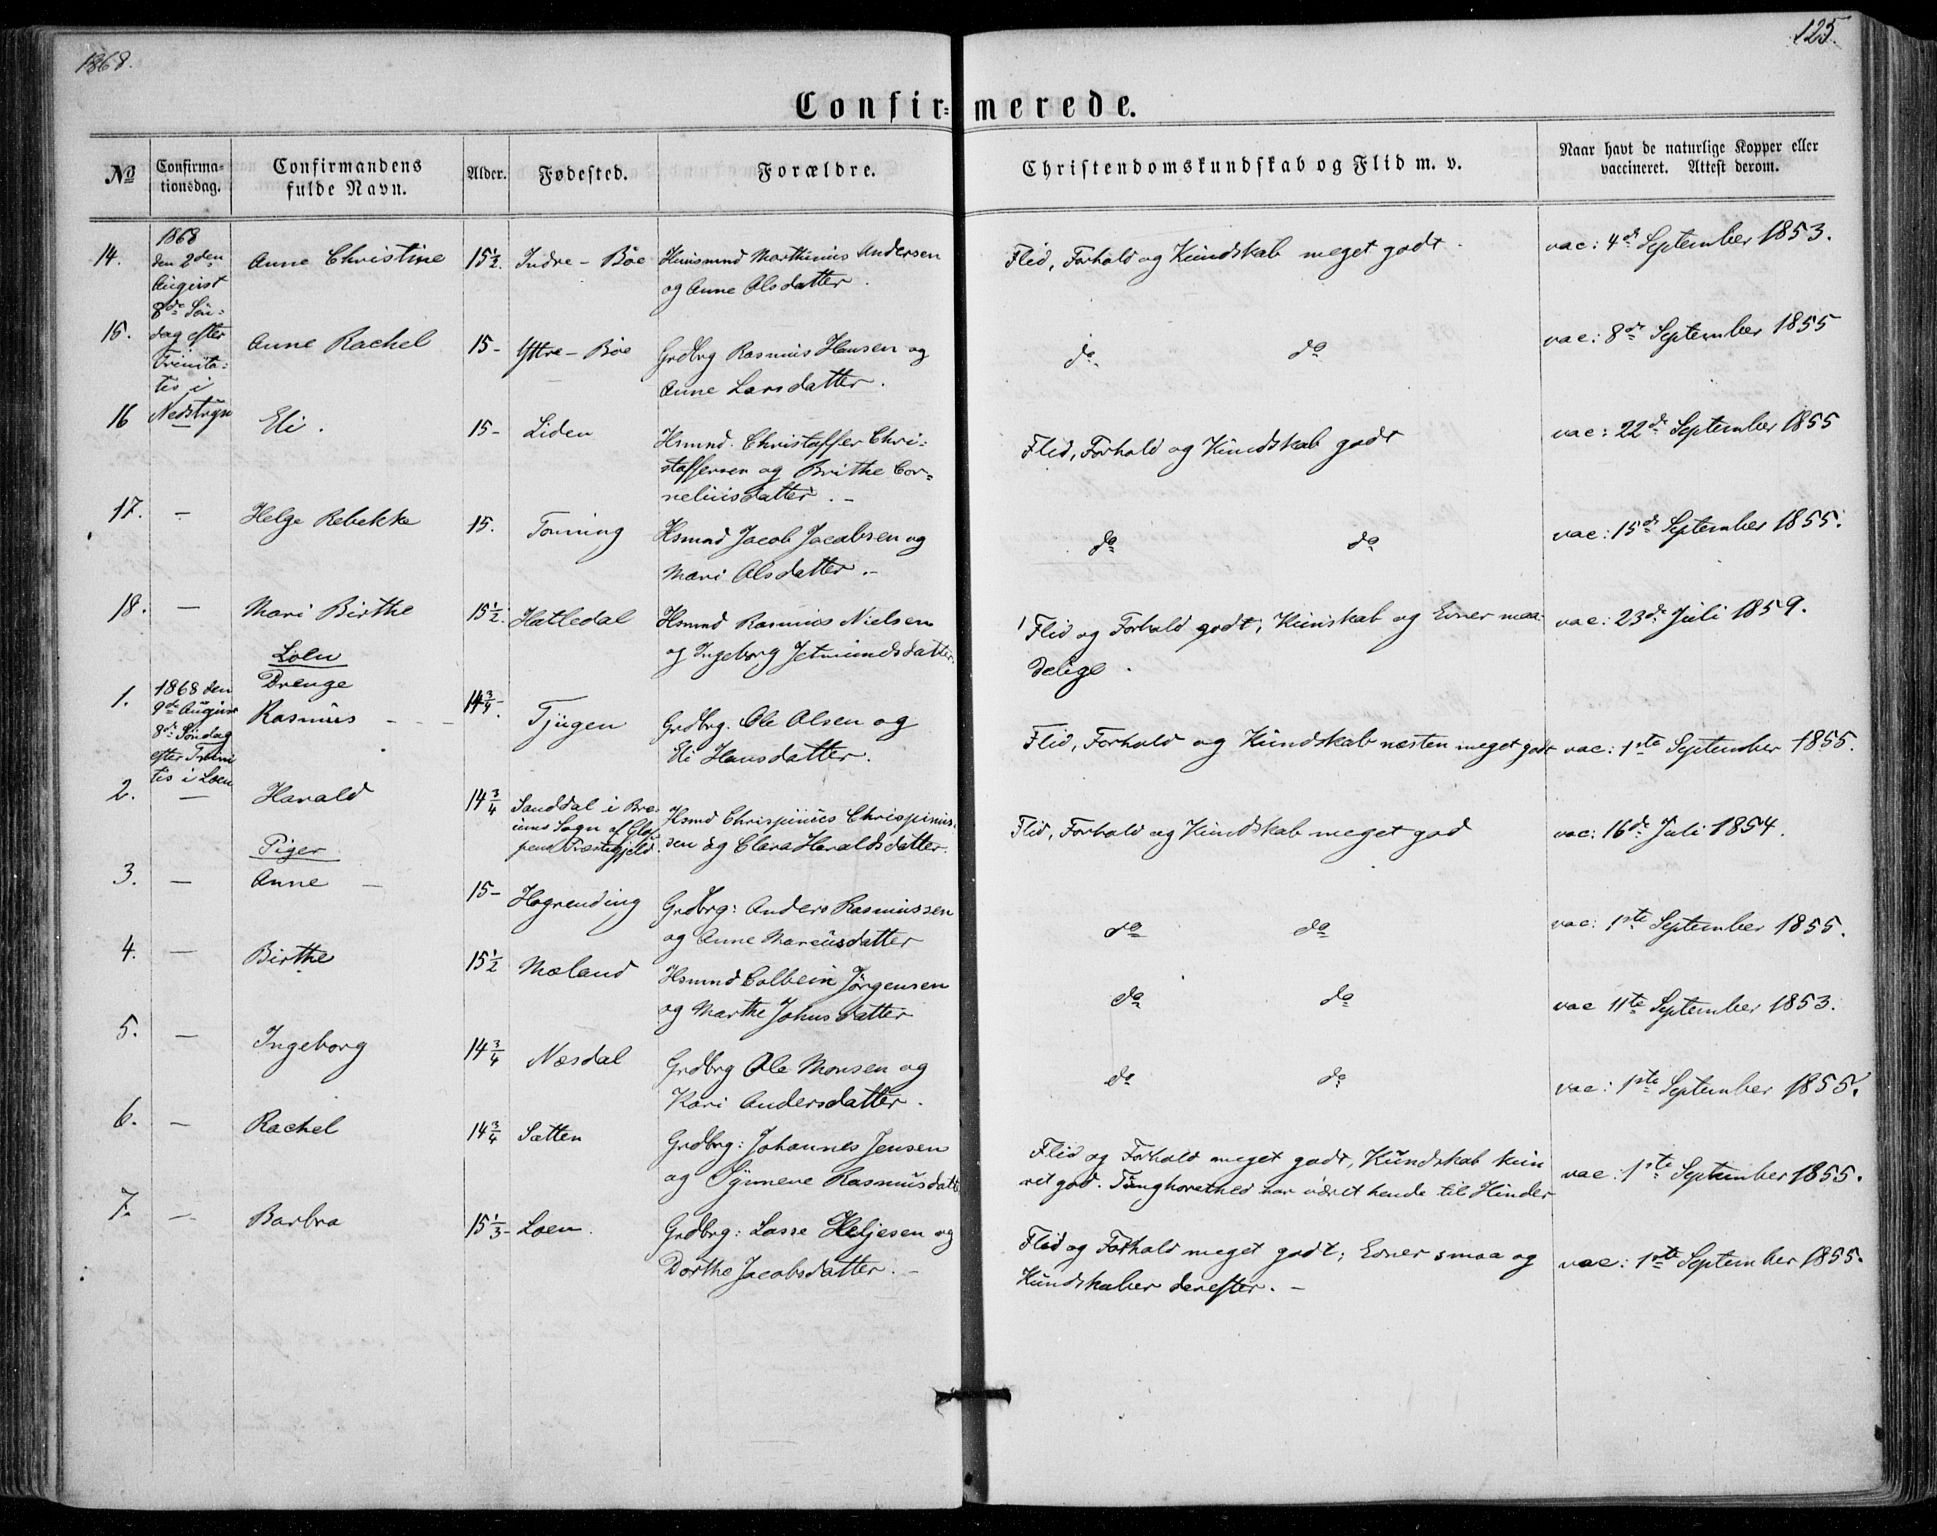 1868.
125.
Confirmerede.
No
Confirmationsdag.
Confirmandens fulde Navn.
Alder.
Fødested.
Forældre.
Christendomskundskab og Flid m. v.
Naar havt de naturlige Kopper eller vaccineret. Attest derom.
14.
1868
den 2den
August
8de Søn-
dag efter
Trinita-
tis i
Nedstryn
Anne Christine
15½.
Indre - Bøe
Huusmnd Marthinus Andersen
og Anne Olsdatter.
Flid, Forhold og Kundskab meget godt.
vac: 4de September 1853.
15.
Anne Rachel
15-
Yttre - Bøe
Grdbrg Rasmus Hansen og
Anne Larsdatter.
do do
vac: 8de September 1855
16
Eli.
15-
Liden
Hsmnd. Christoffer Chri-
stoffersen og Brithe Cor-
neliusdatter. -
Flid, Forhold og Kundskab godt
vac: 22de September 1855
17. -
Helge Rebekke
15.
Tonning
Hsmnd Jacob Jacobsen og
Mari Olsdatter. -
do do
vac: 15de September 1855.
18. -
Mari Birthe
15½.
Hatledal
Hsmnd Rasmus Nielsen
og Ingeborg Jetmundsdatter.
Flid og Forhold godt, Kunskab og Evner maa-
delige.
vac: 23de Juli 1859.
Loen
Drenge
1.
1868 den
9de August
8de Søndag
efter Trini
tis i Loen
Rasmus - -
14¾.
Tjugen
Grdbrg. Ole Olsen og
Eli Hansdatter.
Flid, Forhold og Kundskab næsten meget godt
vac: 1ste September 1855.
2. -
Harald
14¾
Sanddal i Bre-
ums Sogn af Glop-
pens Præstegjeld.
Hsmnd Chrispinus Chrispinus-
sen og Clara Haraldsdatter.
Flid, Forhold og Kundskab meget god
vac: 16de Juli 1854.
Piger
3. -
Anne -
15-
Hogrending
Grdbrg: Anders Rasmussen
og Anne Marcusdatter
do do
vac: 1ste September 1855.
4. -
Birthe
15½
Mæland
Hsmnd Colbein Jørgensen
og Marthe Johnsdatter
do do
vac 11te September 1853.
5. -
Ingeborg
14¾
Næsdal
Grdbrg Ole Monsen og
Kari Andersdatter.
do do
vac: 1ste September 1855.
6. -
Rachel
14¾
Sætten
Grdbrg: Johannes Jensen
og Synneve Rasmusdatt.
Flid og Forhold meget godt, Kundskab kun
ret god. Tunghorethed har været hende til Hinder
vac: 1ste September 1855.
7. -
Barbra
15⅓-
Loen.
Grdbrg: Lasse Heljesen og
Dorthe Jacobsdatter. -
Flid og Forhold meget godt; Evner smaa og
Kundskaber derefter. -
vac: 1ste September 1855.